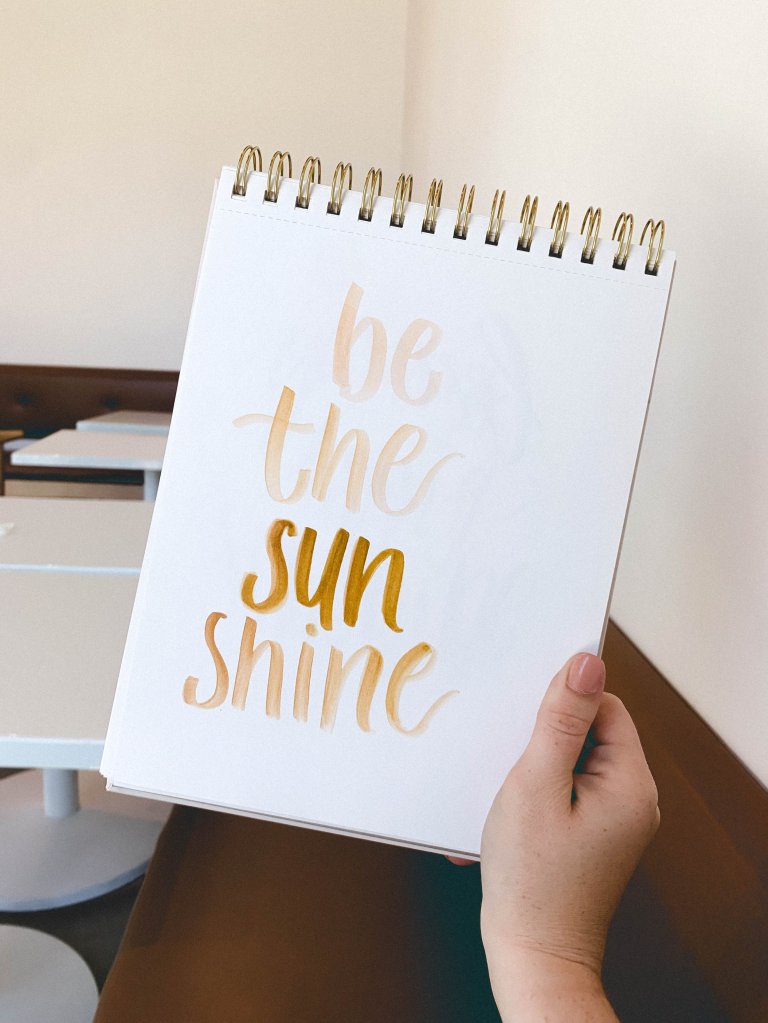 be
the
sun
shine